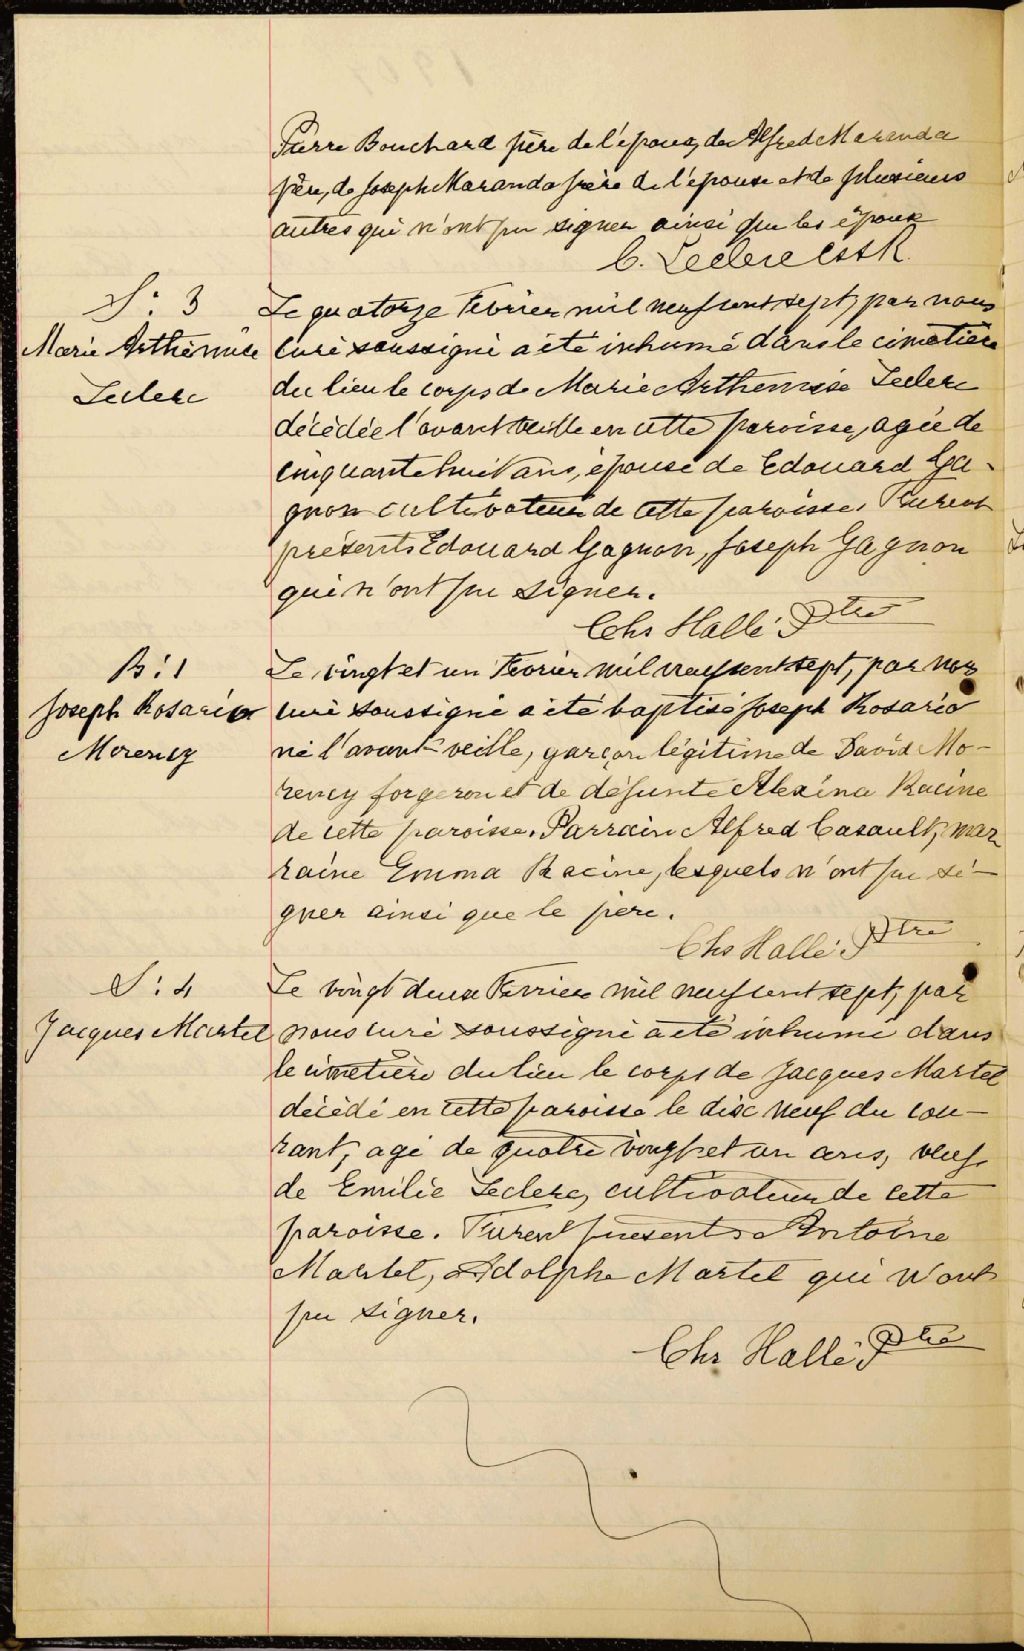 Pierre Bouchard père de l'époux, de Alfred Maranda
père, de Joseph Maranda frère de l'épouse et de plusieurs
autres qui n'ont pu signer ainsi que les époux
C. Leclerc CSSR
S: 3
Marie Arthémise
Leclerc
Le quatorze Fevrier mil neuf cent sept, par nous
curé soussigné a été inhumé dans le cimetière
du lieu le corps de Marie Arthemise Leclerc
décédée l'avant veille en cette paroisse, agée de
cinquante huit ans, épouse de Edouard Ga-
gnon cultivateur de cette paroisse. Furent
présents Edouard Gagnon, Joseph Gagnon
qui n'ont pu signer.
Chs Hallé Ptre
B: 1
Joseph Rosario
Morency
Le vingt et un Fevrier mil neuf cent sept, par nous
curé soussigné a été baptisé Joseph Rosario
né l'avant-veille, garçon légitime de David Mo-
rency forgeron et de défunte Alexina Racine
de cette paroisse. Parrain Alfred Casault, mar
raine Emma Racine, lesquels n'ont pu si-
gner ainsi que le père.
Chs Hallé Ptre
S: 4
Jacques Martel
Le vingt deux Fevrier mil neuf cent sept, par
nous curé soussigné a été inhumé dans
le cimetière du lieu le corps de Jacques Martel
décédé en cette paroisse le dix neuf du cou-
rant, agé de quatre vingt et un ans, veuf
de Emilie Leclerc, cultivateur de cette
paroisse. Furent présents Antoine
Martel, Adolphe Martel qui n'ont
pu signer.
Chs Hallé Ptre